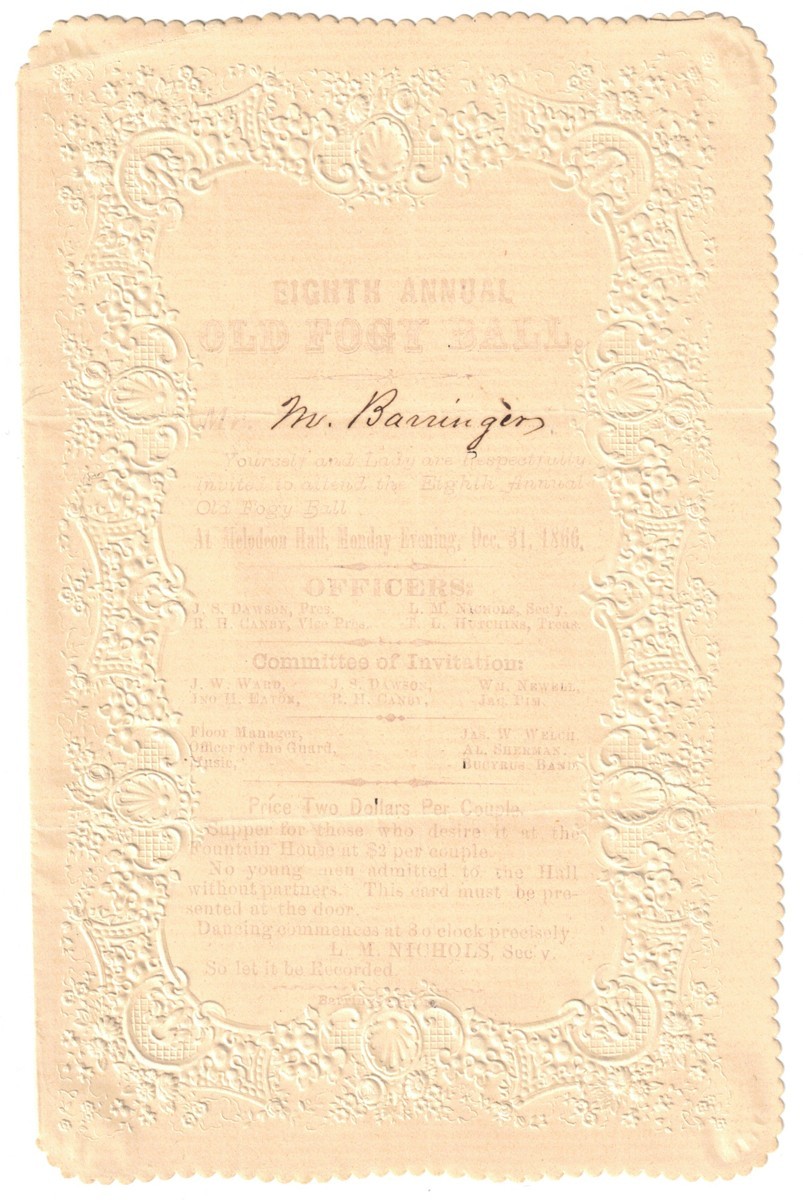 EIGHTH ANNUAL
OLD FOGY BALL.
Mr. M. Barringer
Yourself and Lady are Respectfully
invited to attend the Eighth Annual
Old Fogy Ball.
At Melodeon Hall, Monday Evening, Dec. 31, 1866.
OFFICERS:
J. S. DAWSON, Pres. L. M. NICHOLS, Sec'y.
R. H. CANBY, Vice Pres. T. L. HUTCHINS, Treas.
Committee of Invitation:
J. W. WARD, J. S. DAWSON, WM. NEWELL,
JNO H. EATON, R. H. CANBY, JAC. PIM.
Floor Manager, JAS. W. WELCH.
Officer of the Guard, AL. SHERMAN.
Music, BUCYRUS BAND
Price Two Dollars Per Couple.
Supper for those who desire it at the
Fountain House at $2 per couple.
No young men admitted to the Hall
without partners. This card must be pre-
sented at the door.
Dancing commences at 8 o clock precisely
L. M. NICHOLS, Sec'y.
So let it be Recorded.